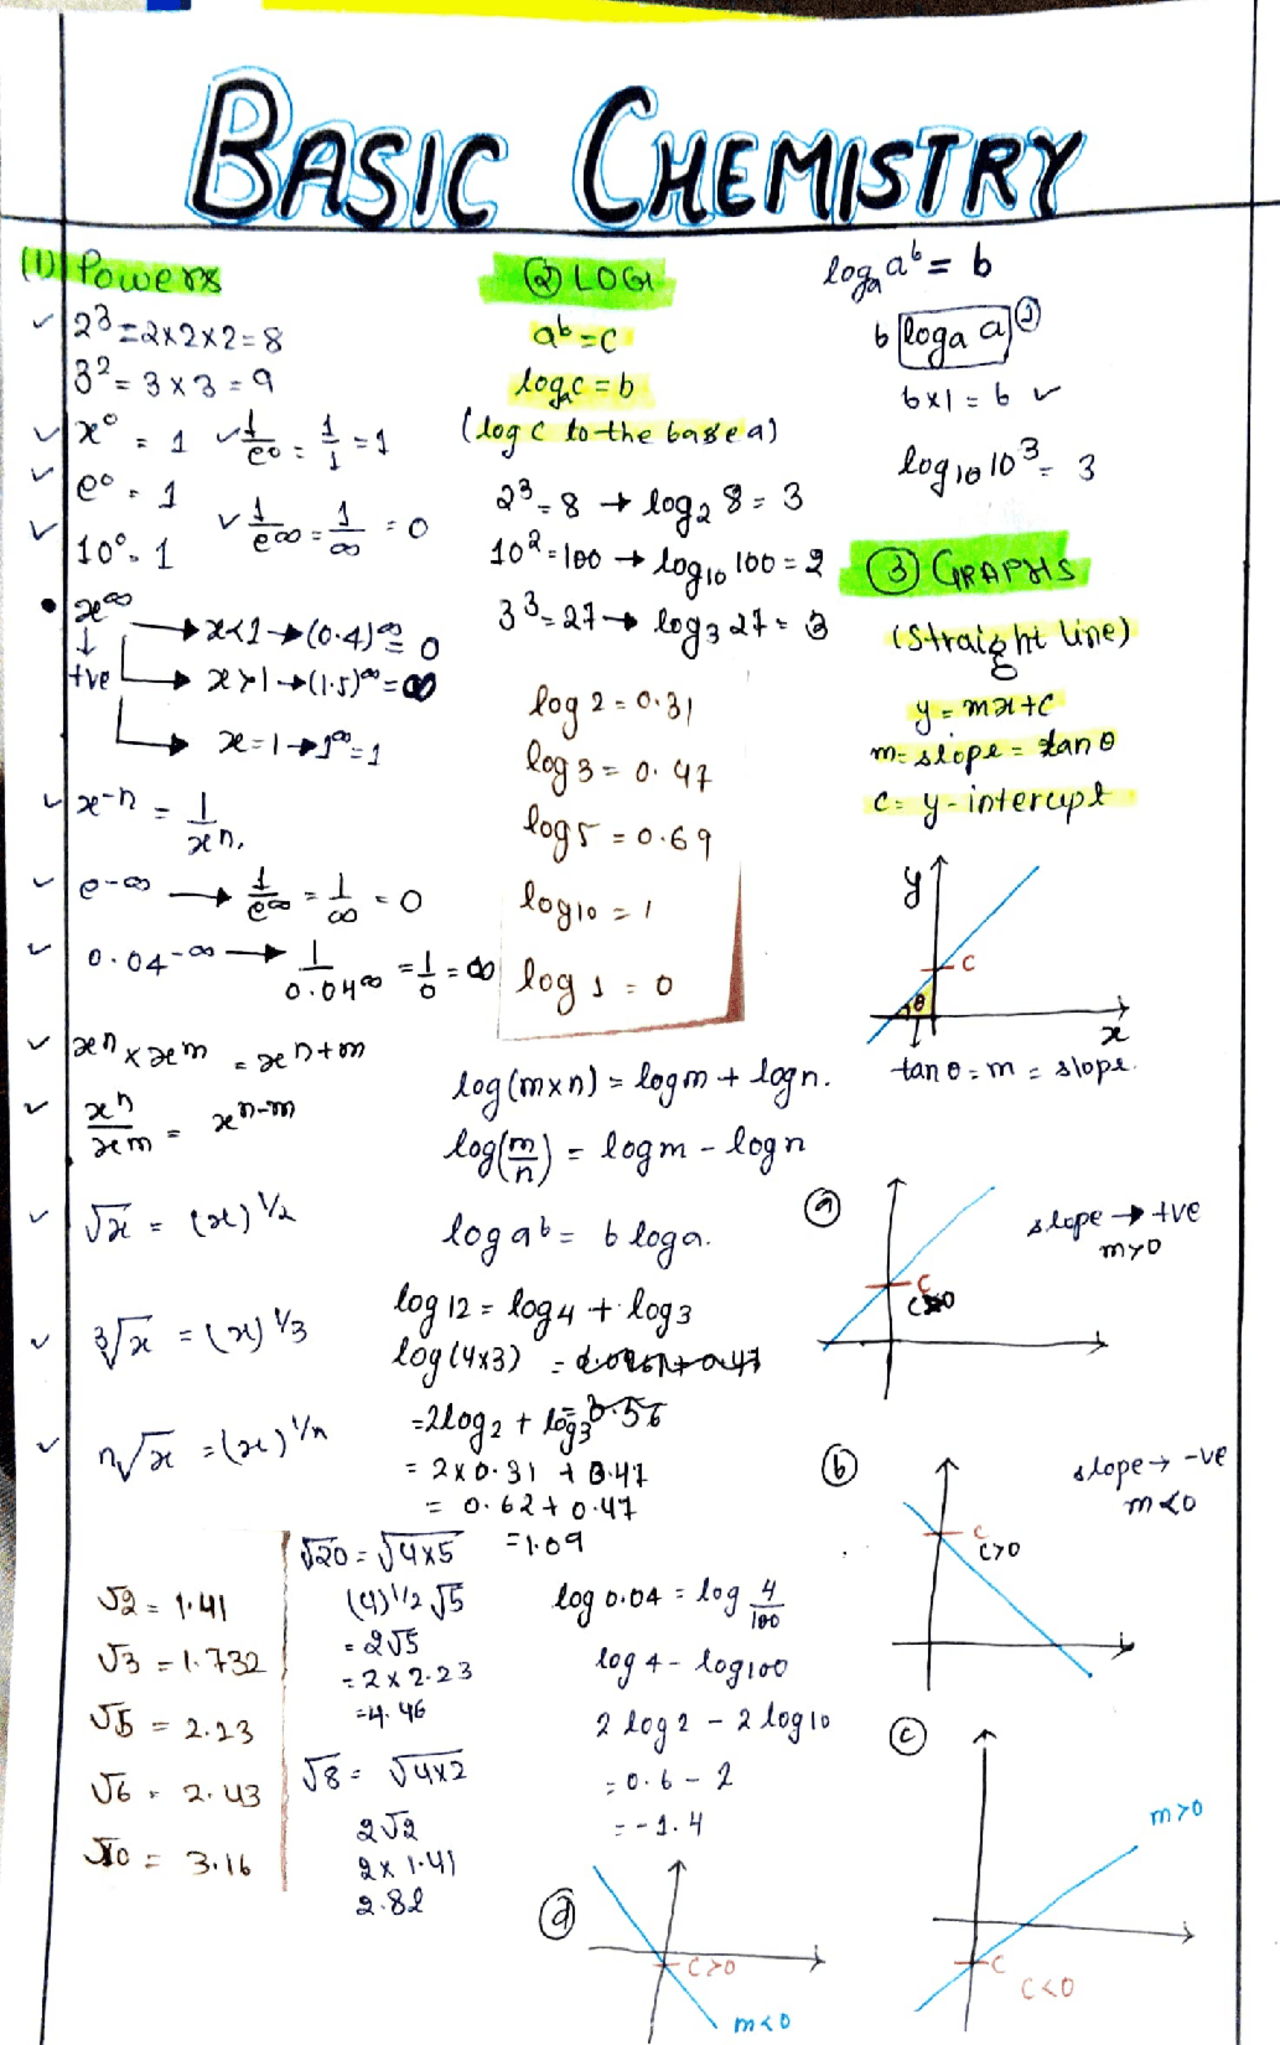 BASIC CHEMISTRY
(1) Powers
2³ = 2×2×2 = 8
3² = 3×3 = 9
x⁰ = 1 1/e⁰ = 1/1 = 1
e⁰ = 1
10⁰ = 1 1/e^∞ = 1/∞ = 0
x^∞
↓
+ve
→ x<1 → (0.4)^∞ = 0
→ x>1 → (1.5)^∞ = ∞
→ x=1 → 1^∞ = 1
x⁻ⁿ = 1/xⁿ.
e^-∞ → 1/e^∞ = 1/∞ = 0
0.04^-∞ → 1/0.04^∞ = 1/0 = ∞
xⁿ × x^m = x^n+m
xⁿ/x^m = x^n-m
√x = (x)^1/2
³√x = (x)^1/3
ⁿ√x = (x)^1/n
√2 = 1.41
√3 = 1.732
√5 = 2.23
√6 = 2.43
√10 = 3.16
√20 = √4×5
(4)^1/2 √5
= 2√5
= 2×2.23
= 4.46
√8 = √4×2
2√2
2×1.41
2.82
② LOG
a^b = c
logₐc = b
(log c to the base a)
2³ = 8 → log₂ 8 = 3
10² = 100 → log₁₀ 100 = 2
3³ = 27 → log₃ 27 = 3
log 2 = 0.31
log 3 = 0.47
log 5 = 0.69
log 10 = 1
log 1 = 0
log(m×n) = log m + log n.
log(m/n) = log m - log n
log a^b = b log a.
log 12 = log 4 + log 3
log(4×3) =
= 2log 2 + log 3
= 2×0.31 + 0.47
= 0.62 + 0.47
= 1.09
log 0.04 = log 4/100
log 4 - log 100
2 log 2 - 2 log 10
= 0.6 - 2
= -1.4
logₐ a^b = b
b logₐ a ①
b×1 = b ✓
log₁₀ 10³ = 3
③ GRAPHS
(Straight line)
y = mx+c
m = slope = tan θ
c = y-intercept
y
c
θ
x
tan θ = m = slope.
ⓐ slope → +ve
m>0
c
c>0
ⓑ slope → -ve
m<0
c
c>0
ⓒ
m>0
c
c<0
ⓓ
c>0
m<0